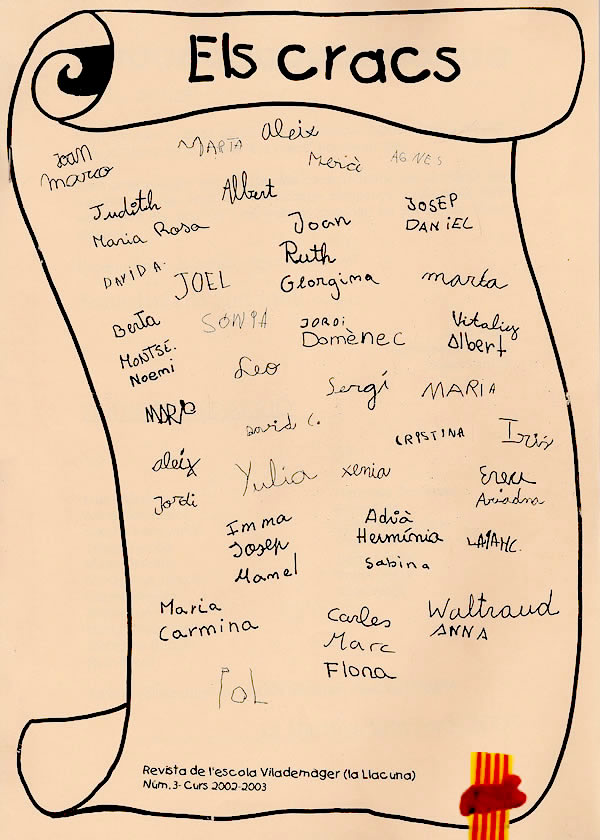 Els cracs
Aleix
MARTA
Joan
Mercè
AGNES
Marco
Albert
Judith
JOSEP
Joan
DANIEL
Maria Rosa
Ruth
DAVID A.
JOEL
Georgina
marta
Berta
SONIA
JORDI
Vitaliy
Domènec
Albert
MONTSE.
Noemi
Leo
Sergi
MARIA
MARIO
David C.
CRISTINA
Iris
aleix
Yulia
xenia
Jordi
Ariadna
Imma
Adrià
Josep
Hermínia
Manel
Sabina
Maria
Carles
Waltraud
Carmina
ANNA
Marc
Flona
Pol
Revista de l'escola Vilademàger (la Llacuna)
Núm. 3- Curs 2002-2003